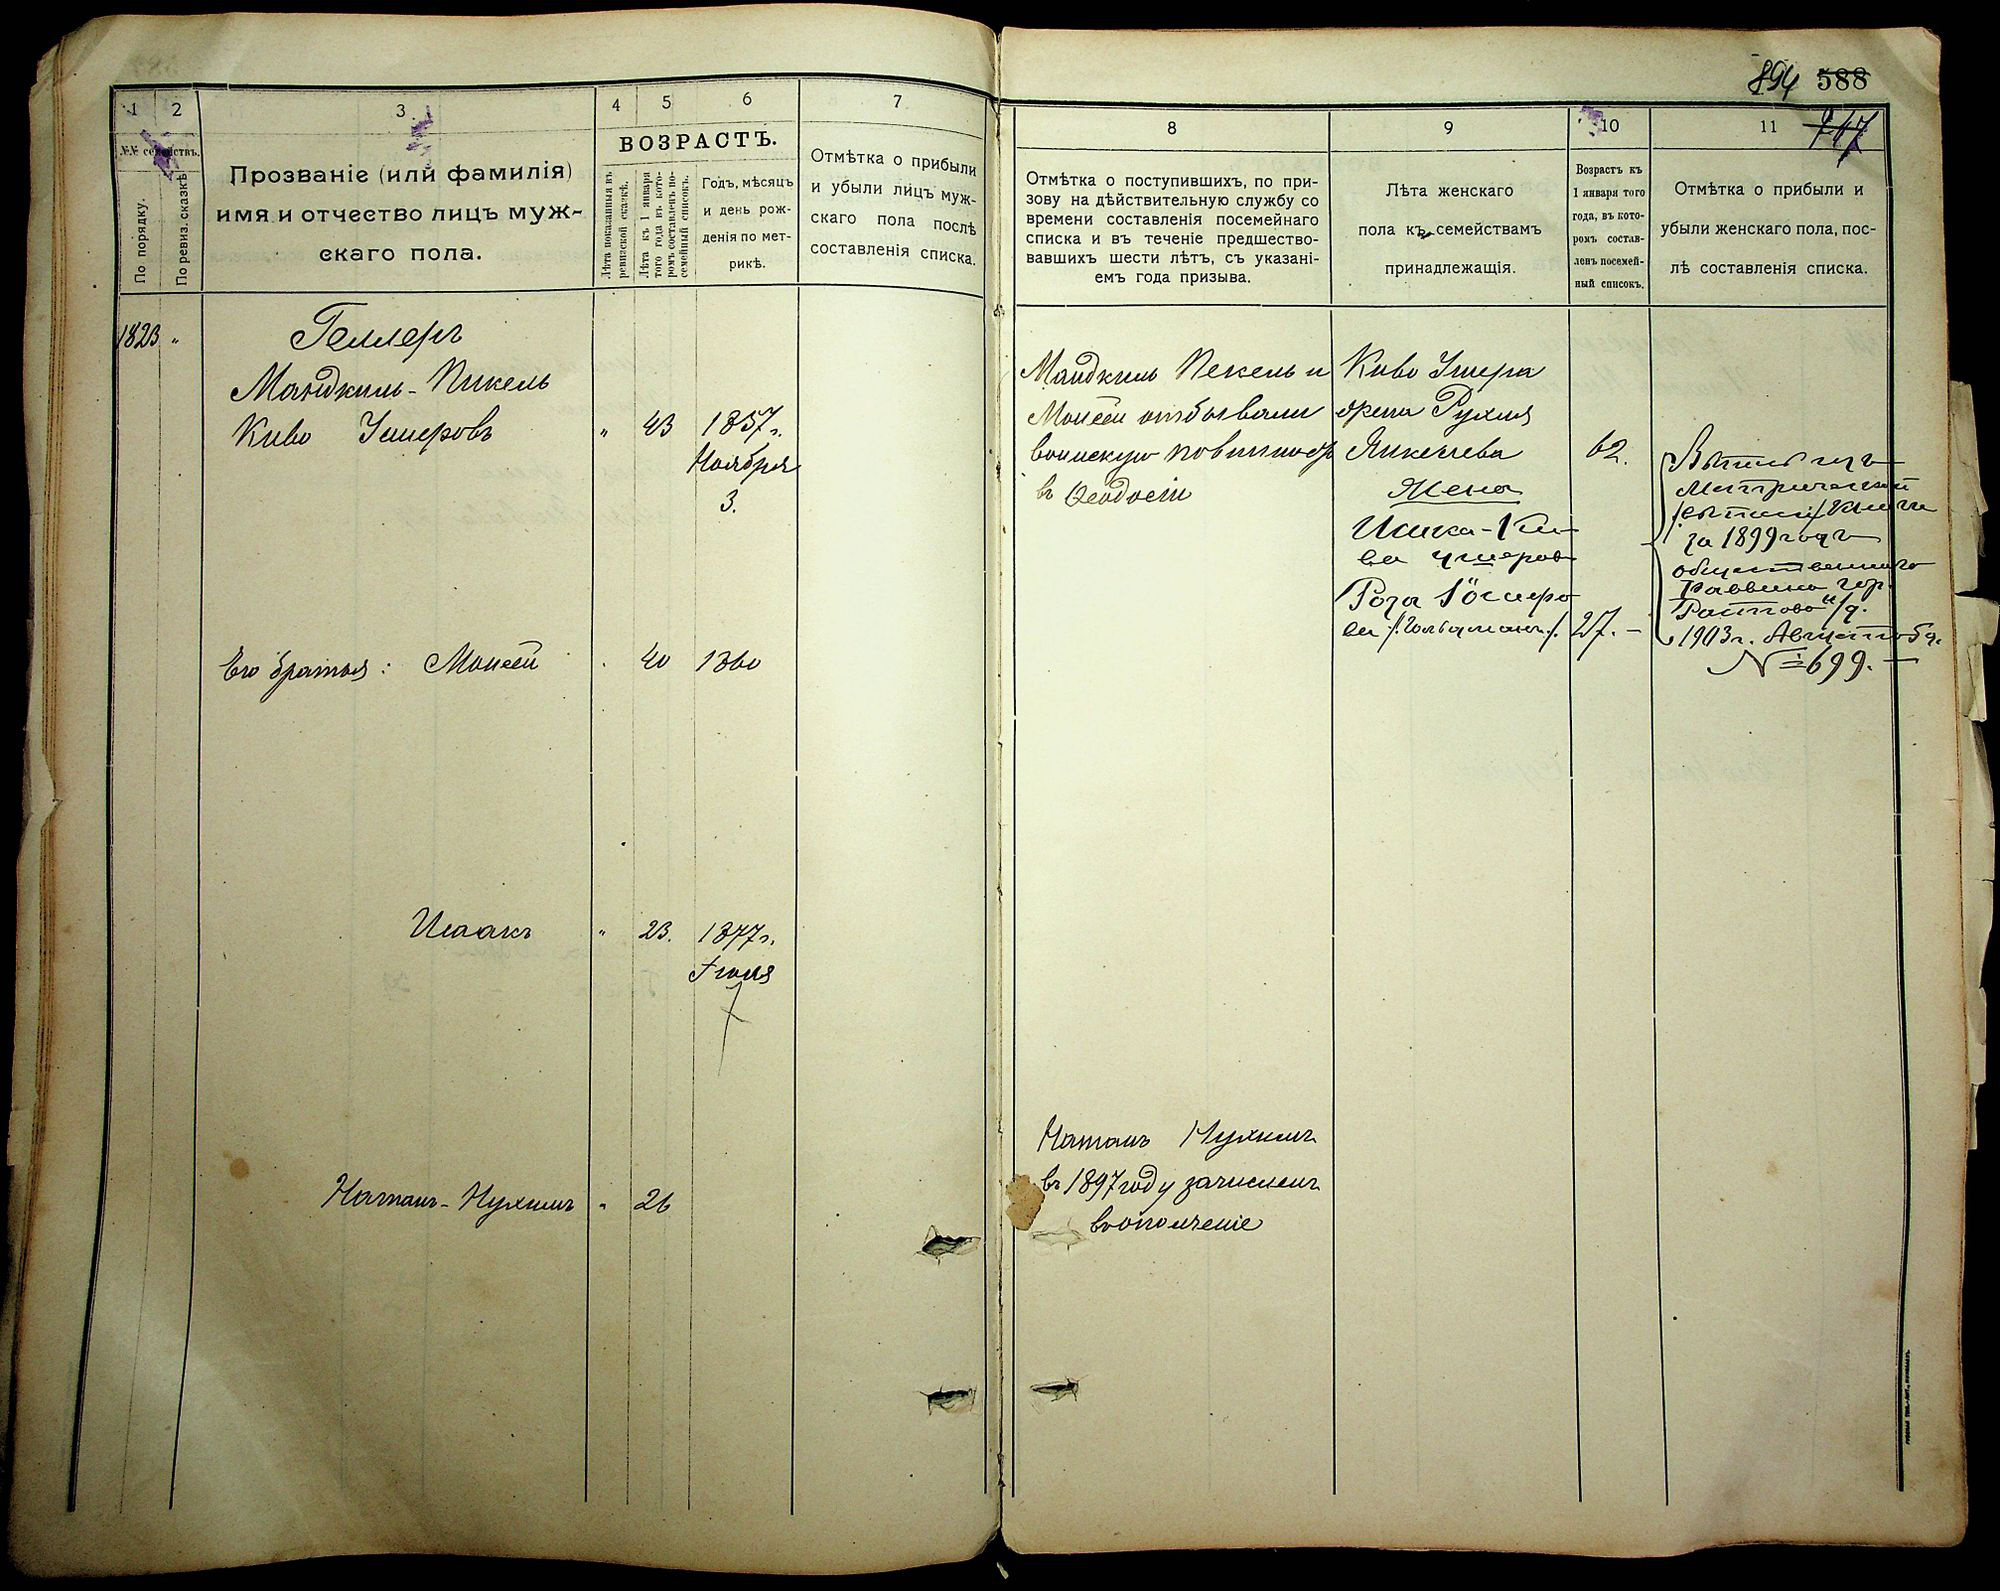 1
2
3
4
5
6
7
№№ семействъ.
По порядку.
По ревиз. сказкѣ
Прозваніе (или фамилія)
имя и отчество лицъ муж-
скаго пола.
ВОЗРАСТЪ.
Лѣта показанныя въ
ревизской сказкѣ.
Лѣта къ 1 января
того года въ кото-
ромъ составленъ по-
семейный списокъ.
Годъ, мѣсяцъ
и день рож-
денія по мет-
рикѣ.
Отмѣтка о прибыли
и убыли лицъ муж-
скаго пола послѣ
составленія списка.
1823 "
Геллеръ
Мандкиль-Пикель
Киво Ушеровъ " 43 1857 г.
Ноября
3.
Его братья: Моисей 40 1860
Исаакъ " 23. 1877 г.
Іюня
7
Натанъ-Нухимъ " 26
894 588
747
8
9
10
11
Отмѣтка о поступившихъ, по при-
зову на дѣйствительную службу со
времени составленія посемейнаго
списка и въ теченіе предшество-
вавшихъ шести лѣтъ, съ указані-
емъ года призыва.
Лѣта женскаго
пола къ семействамъ
принадлежащія.
Возрастъ къ
1 января того
года, въ кото-
ромъ состав-
ленъ посемей-
ный списокъ.
Отмѣтка о прибыли и
убыли женскаго пола, пос-
лѣ составленія списка.
Мандкиль Пекель и
Моисей отбывали
воинскую повинность
въ Ѳеодосіи
Киво Ушера
Рухля
62.
Жена
Ицика-Ки-
ва Ушеров
Роза Іосифо
ва /Гольдман/ 27. -
Метрической
книги
за 1899 годъ
общественнаго
Раввина гор.
Ростова н/д.
1903 г. Августа 6 д.
№ 699. -
Натанъ Нухимъ
въ 1897 году зачисленъ
въ ополченіе